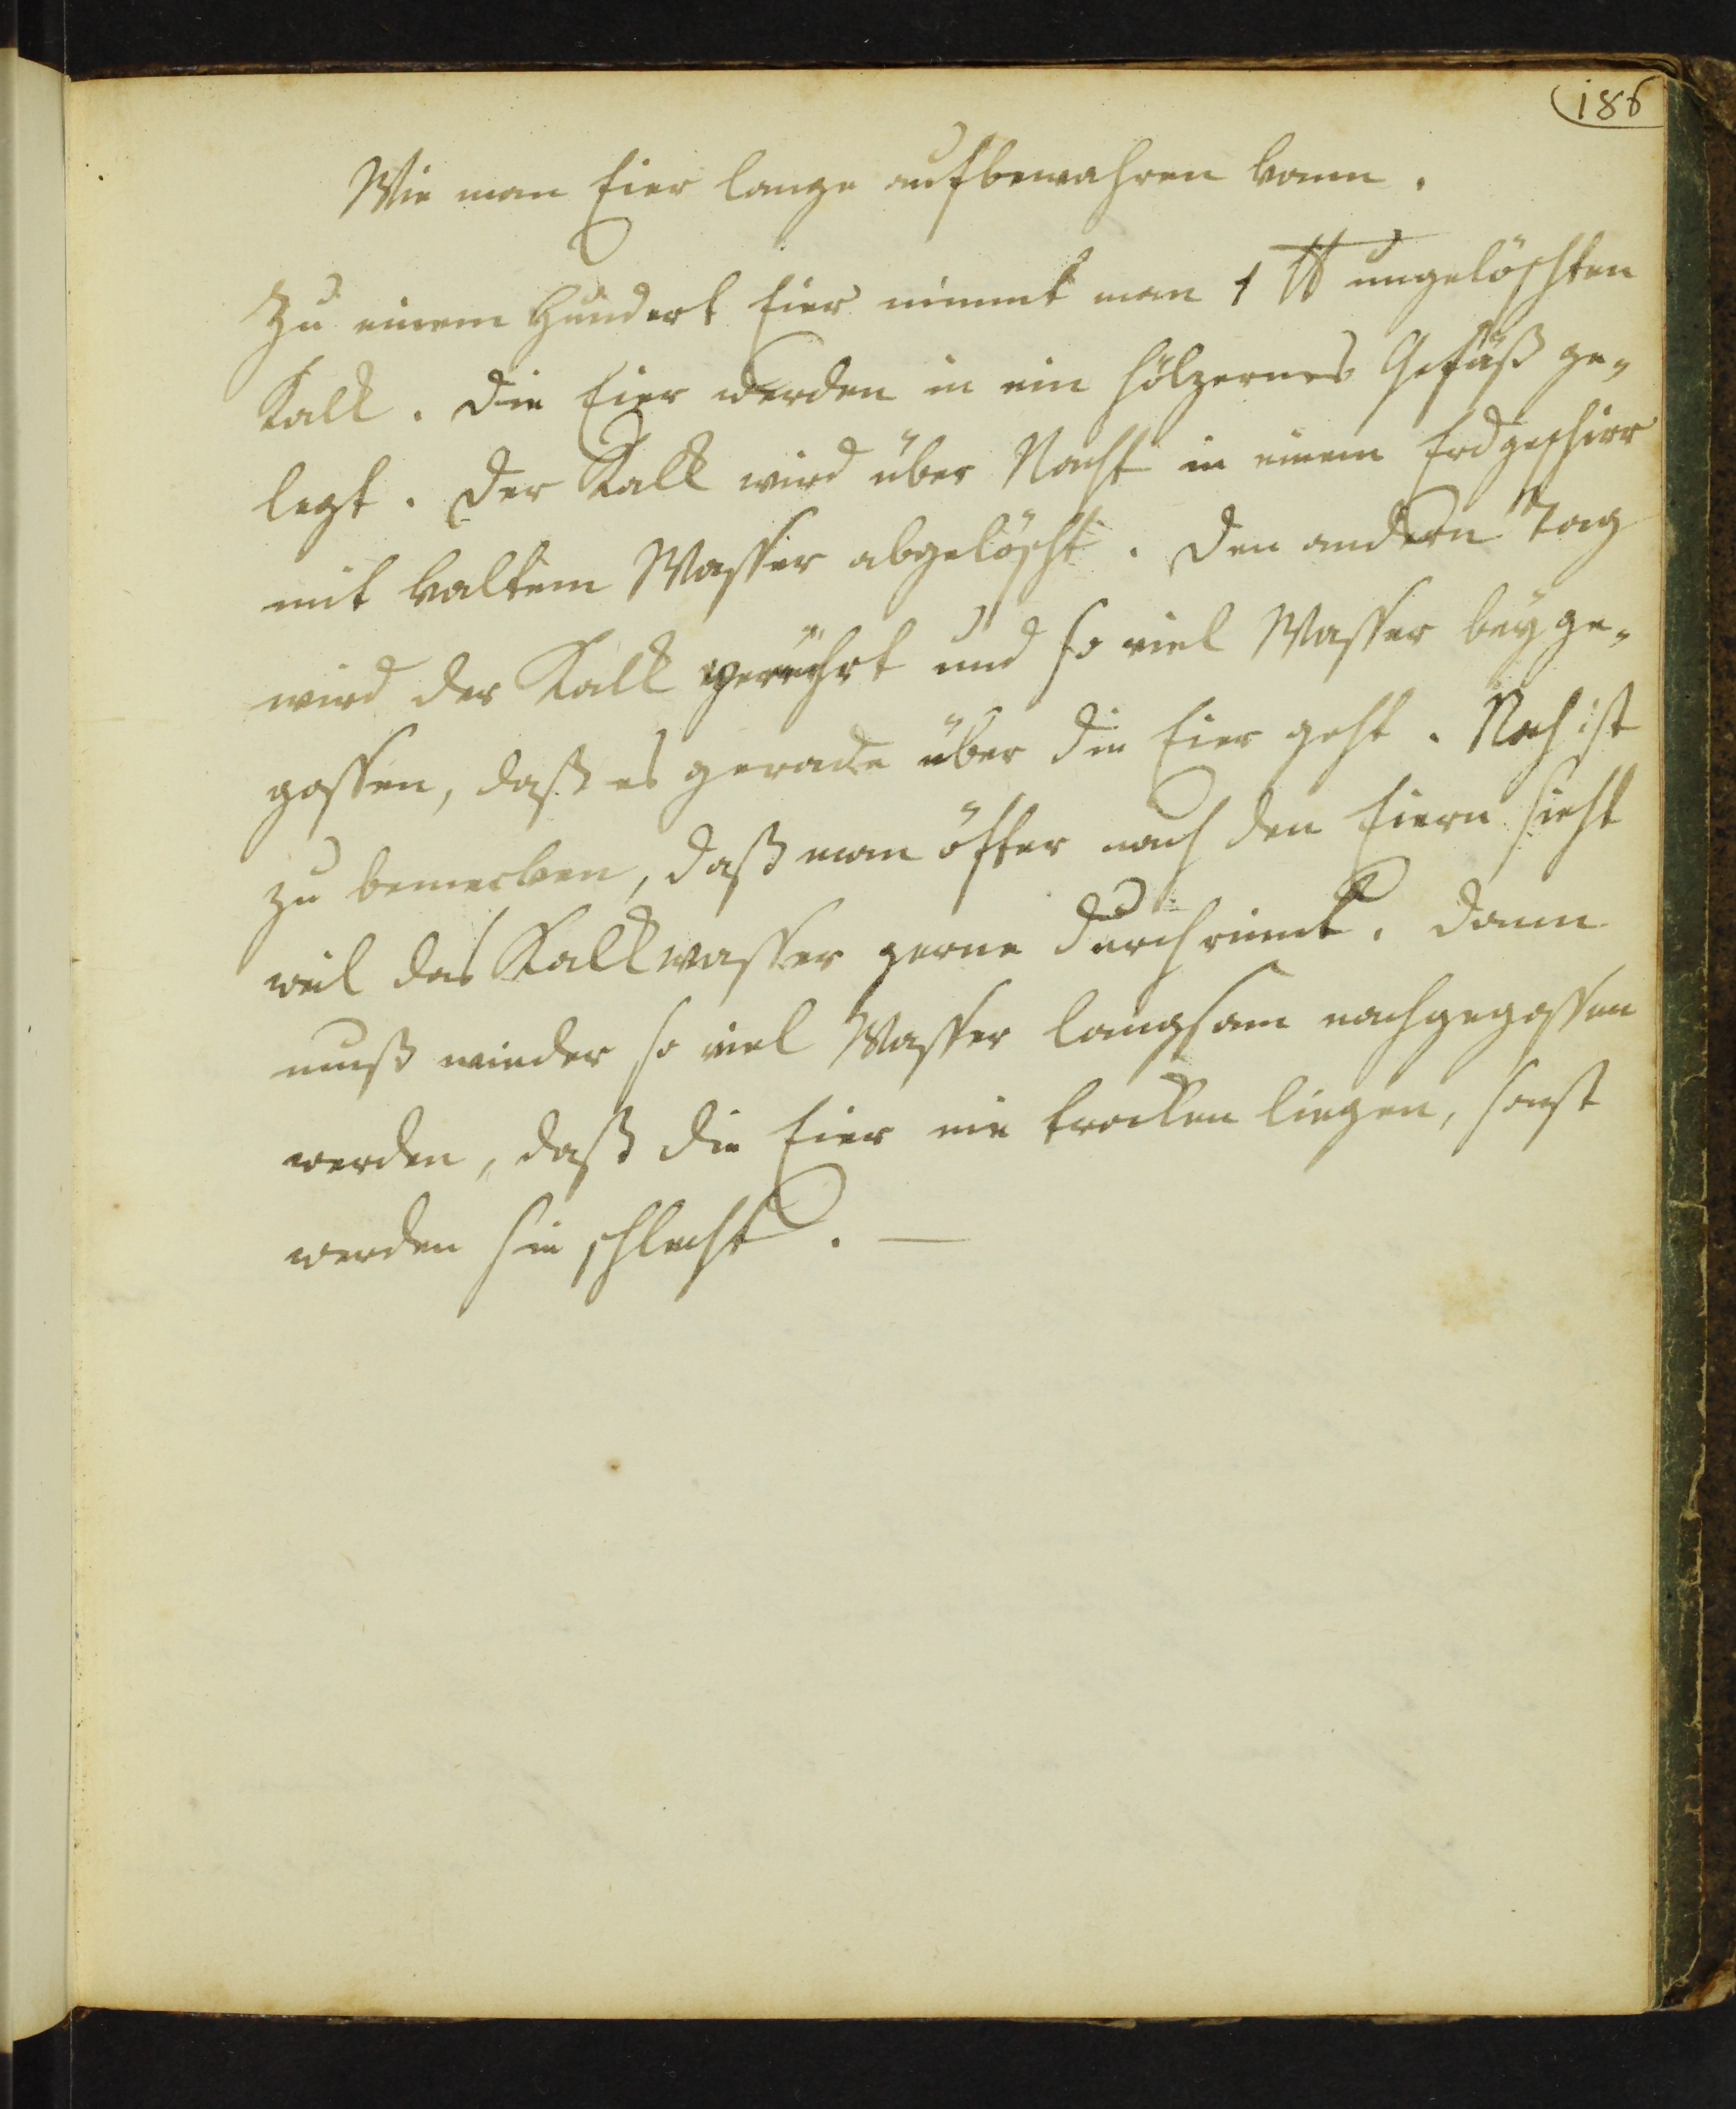 186
Wie man Eier lange aufbewahren kann.
Zu einem Hundert Eier nimmt man 1 ℔ ungelöschten
Kalk. Die Eier werden in ein hölzernes Gefäß ge-
legt. Der Kalk wird über Nacht in einem Erdgeschirr
mit kaltem Wasser abgelöscht. Den andern Tag
wird der Kalk gerührt und so viel Wasser beyge-
gossen, daß es gerade über die Eier geht. Noch ist
zu bemerken, daß man öfter nach den Eiern sieht
weil das Kalkwasser gerne durchrinnt. Dann
muß wieder so viel Wasser langsam nachgegossen
werden, daß die Eier nie trocken liegen, sonst
werden sie schlecht. —